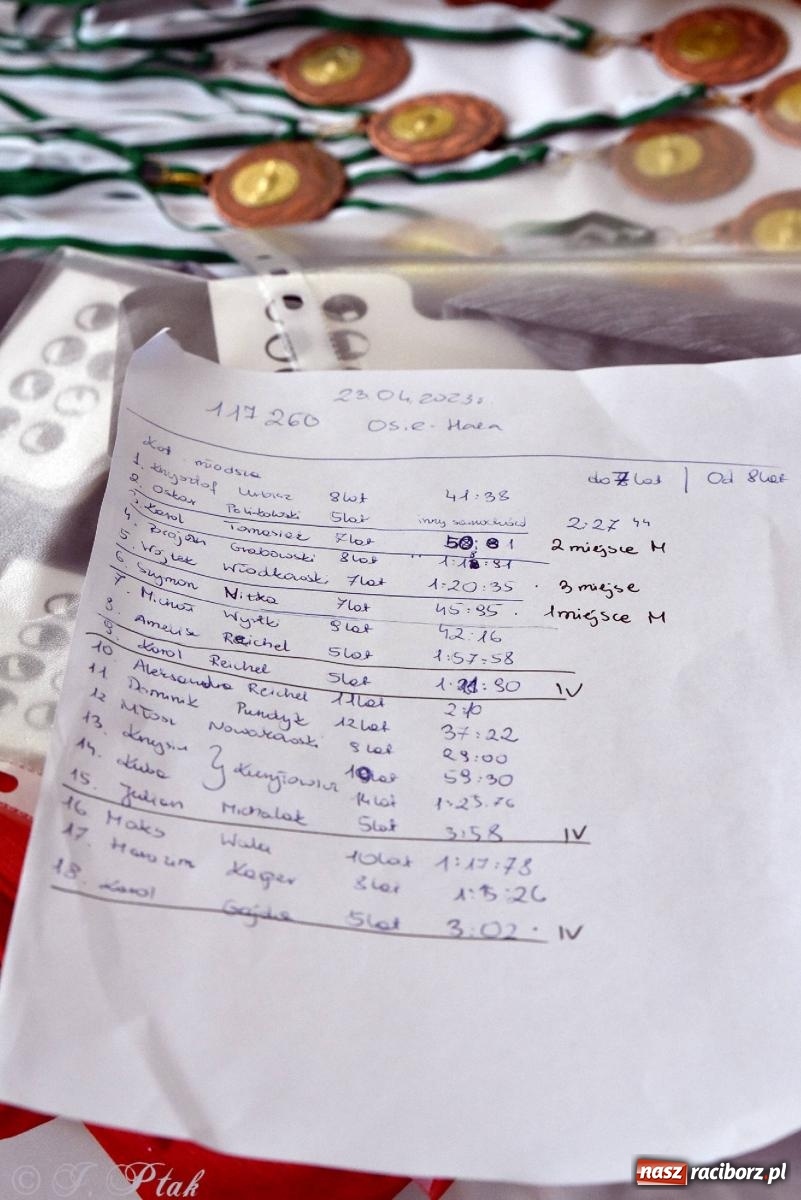 23.04.2023r.
117 260 OS.e-Hala
Kat młodsza do 7 lat | Od 8 lat
1. Krzysztof 8 lat 41:38
2. Oskar 5 lat inny samochód 2:27 44
3. Karol Tomasiek 7 lat 50:81 2 miejsce M
4. Grabowski 8 lat
5. Wojtek Włodkowski 7 lat 1:20:35 · 3 miejsce
6. Szymon Nitka 7 lat 45:95 · 1 miejsce M
7. Michał Wyrki 9 lat 42:16
8. Amelia Reichel 5 lat 1:57:58
9. Karol Reichel 5 lat 30 IV
10. Aleksandra Reichel 11 lat
11. Dominik 12 lat 37:22
12. Nowakowski 9 lat 29:00
13. 10 lat 59:30
14. Kuba 14 lat 1:25.76
15. Julian Michalak 5 lat 3:58 IV
16. Maks 10 lat 1:17:78
17. 8 lat 1:15:26
18. Karol Gajda 5 lat 3:02 · IV
© J. Ptak
nasz raciborz.pl